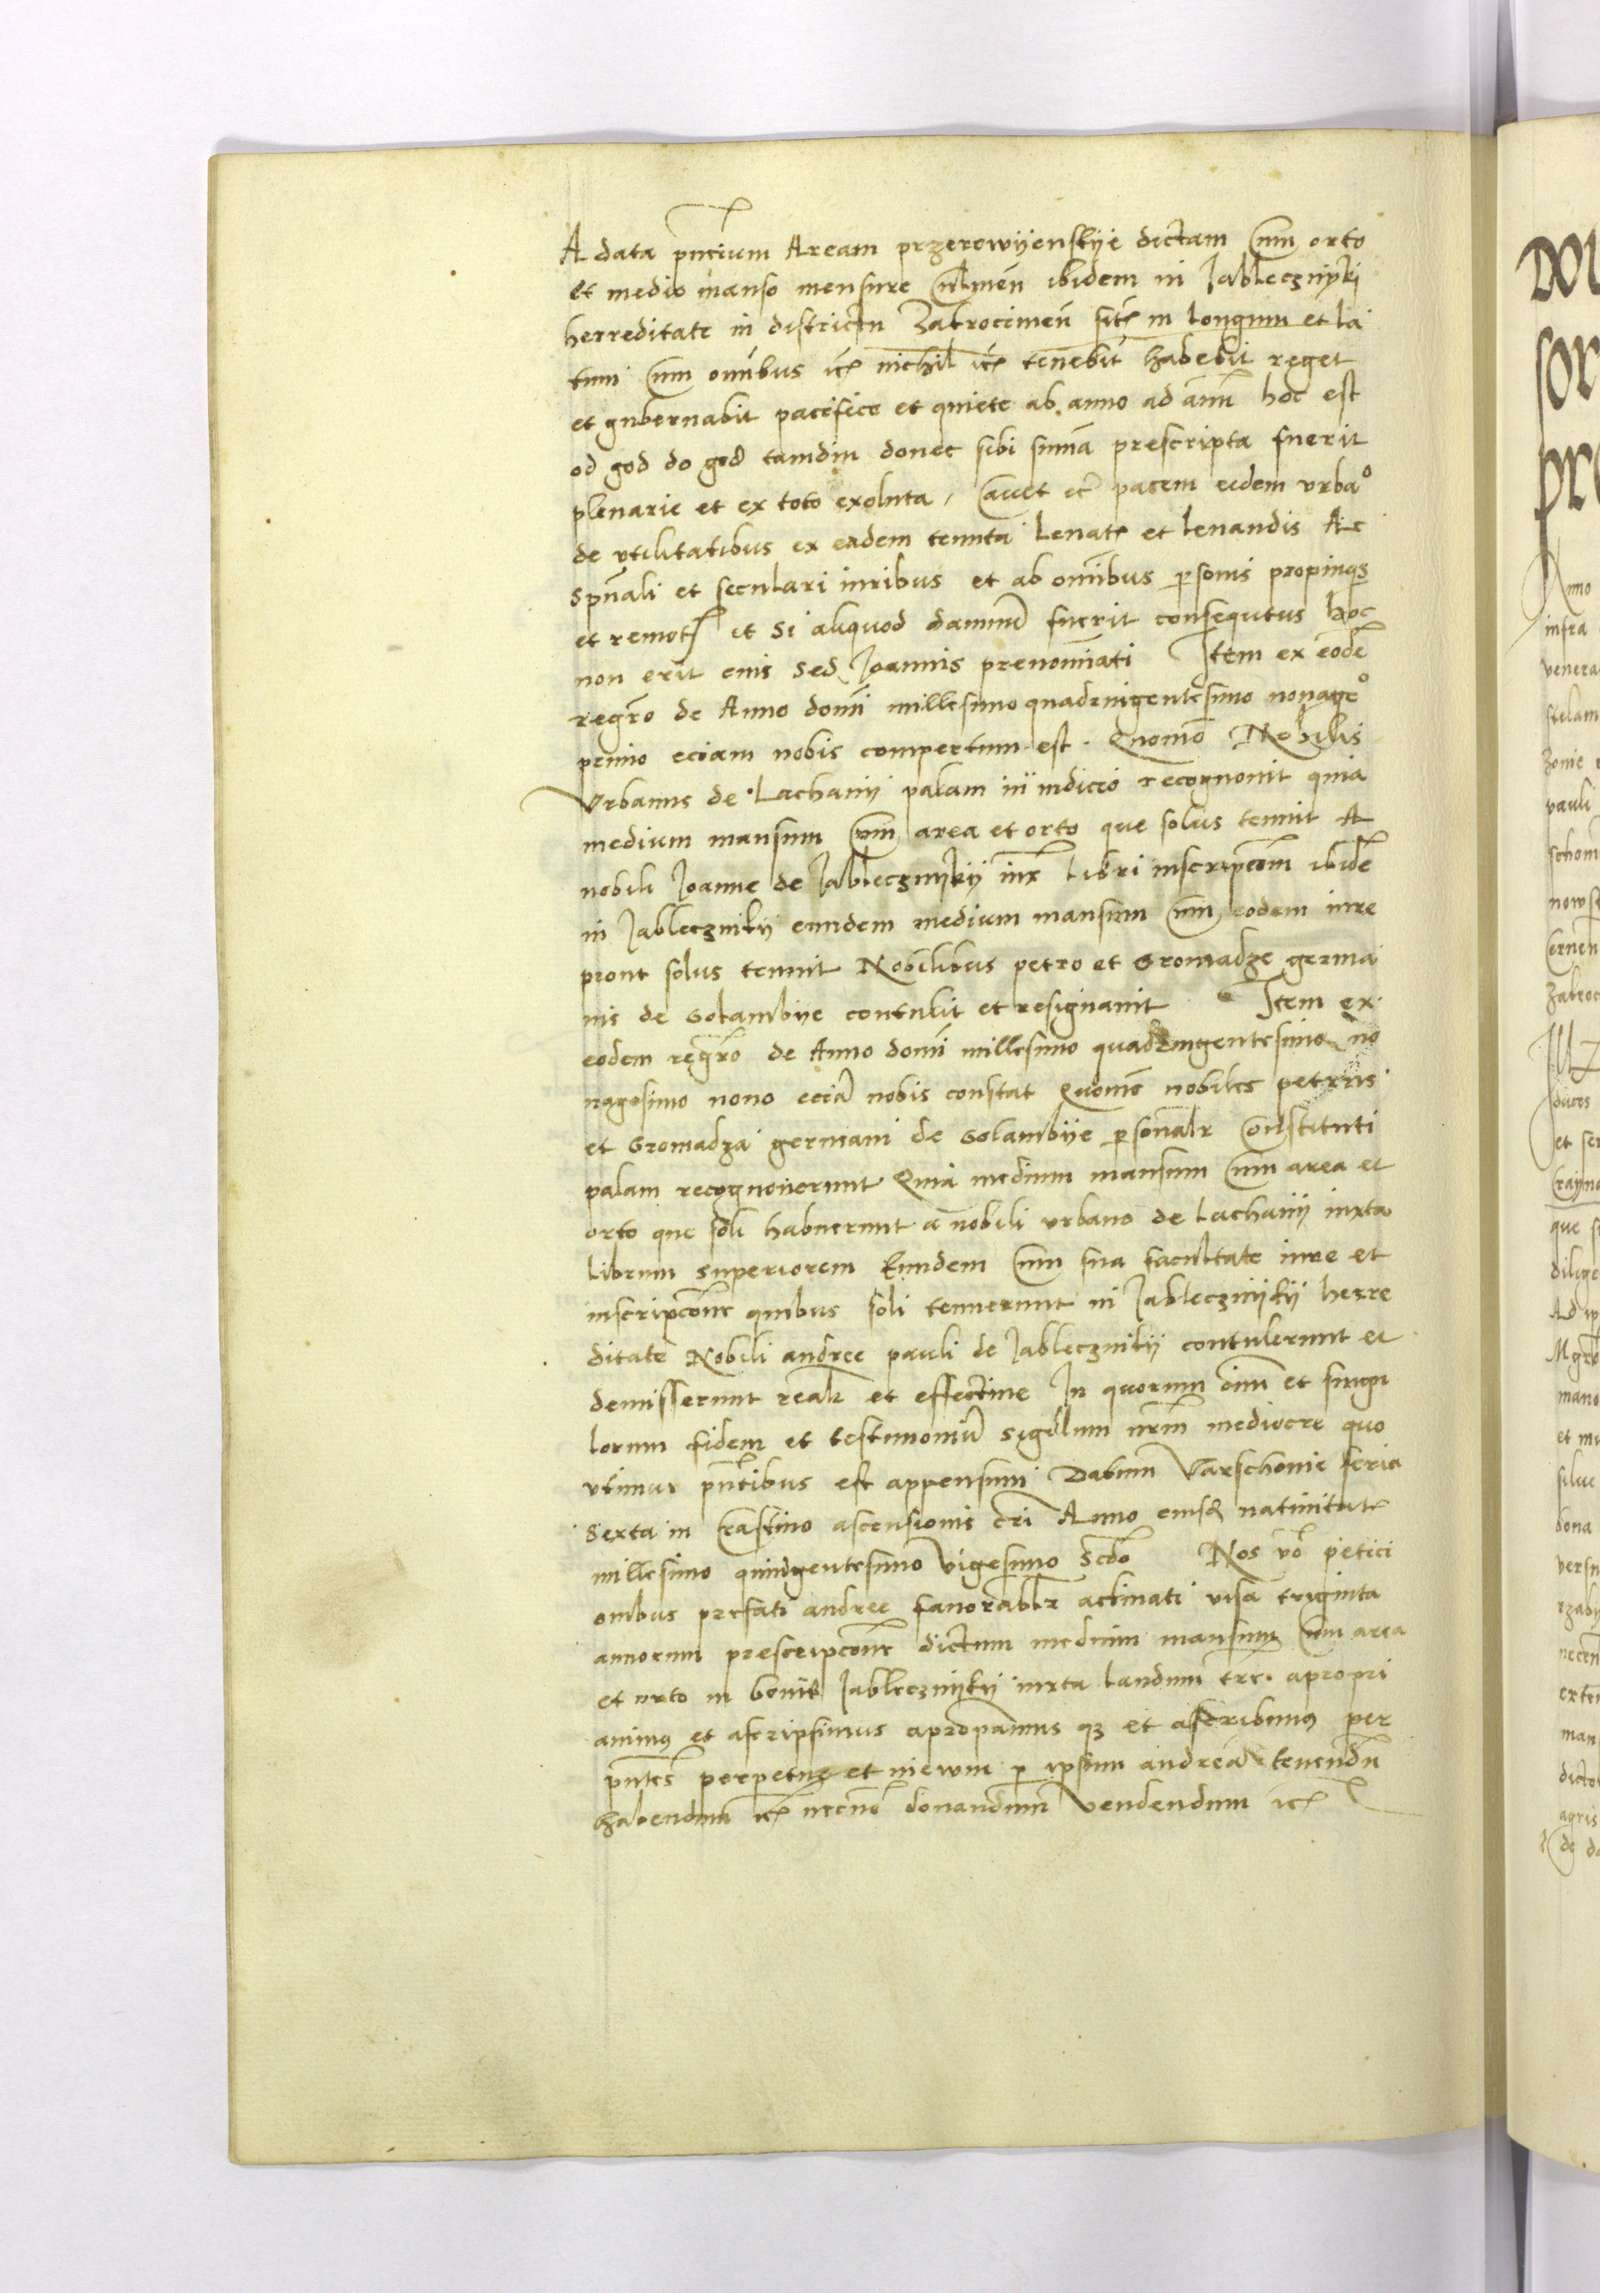 A data pn̄cium Aream przerowyenskye dictam cum orto
et medio manso mensure culmen̄ ibidem in Jablecznyki
herreditate in districtu Zakrocimen̄ sit̄ in longum et la
tum cum om̄ibus etc̄ nichil etc̄ tenebit habebit reget
et gubernabit pacifice et quiete ab anno ad annū hoc est
od god do god tamdiu donec sibi sum̄a prescripta fuerit
plenarie et ex toto exoluta, cauet etc̄ pacem eidem vrba°
de vtilitatibus ex eadem tenuta leuat̄ et leuandis A
spūali et seculari iuribus et ab om̄ibus personis propinqs
et remot̄ et si aliquod damnū fuerit consequtus hoc
non erit eius sed Joannis prenomīati Item ex eodē
regr̄o de Anno domī millesimo quadringentesimo nonage°
primo eciam nobis compertum est. Quomō Nobilis
Vrbanus de Lachany palam in iudicio recognouit quia
medium mansum cum area et orto que solus tenuit A
nobili Joanne de Jableczniky iux̄ libri inscripcōm ibidē
in Jableczniky eundem medium mansum cum eodem iure
prout solus tenuit Nobilibus petro et Gromadze germa
nis de Golambye contulit et resignauit Item ex
eodem regr̄o de Anno domī millesimo quadringentesimo no
nagesimo nono eciā nobis constat Quomō nobiles petrus
et Gromadza germani de Golambye personalr̄ Constituti
palam recognouerunt Quia medium mansum cum area et
orto que soli habuerunt a nobili vrbano de Lachany iuxta
librum superiorem Eundem cum sua facultate iure et
inscripcōne quibus soli tenuerunt in Jablecznyky herre
ditate Nobili andree pauli de Jableczniky contulerunt et
demisserunt realr̄ et effectiue In quorum om̄i et singu
lorum fidem et testimoniū sigillum nrm̄ mediocre quo
vtimur pn̄tibus est appensum Datum Varschouie feria
sexta in crastino ascensionis cri Anno eiusd̄ natiuitat̄
millesimo quingentesimo vigesimo scd̄o Nos vō petici
onibus prefati andree fauorablr̄ aclinati visa triginta
annorum prescripcōne dictum medium mansum cum area
et orto in bonis Jablecznyky iuxta laudum trē. apropri
auimus et ascripsimus apropriamus qz et ascribimus per
pn̄tes perpetue et in ewm p ipsum andreā tenendū
habendum etc̄ necnō donandum vendendum etc̄